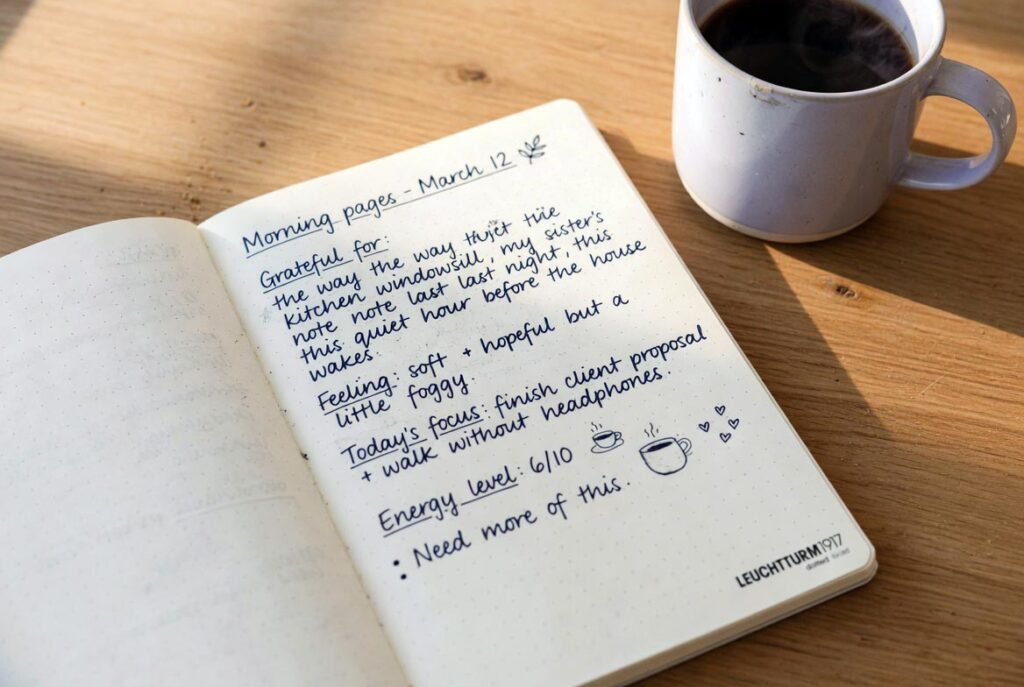 Morning pages - March 12
Grateful for:
the way the way the
kitchen windowsill, my sister's
note note last last night, this
this quiet hour before the house
wakes.
Feeling: soft + hopeful but a
little foggy
Today's focus: finish client proposal
+ walk without headphones.
Energy level: 6/10
: Need more of this.
LEUCHTTURM1917
dotted